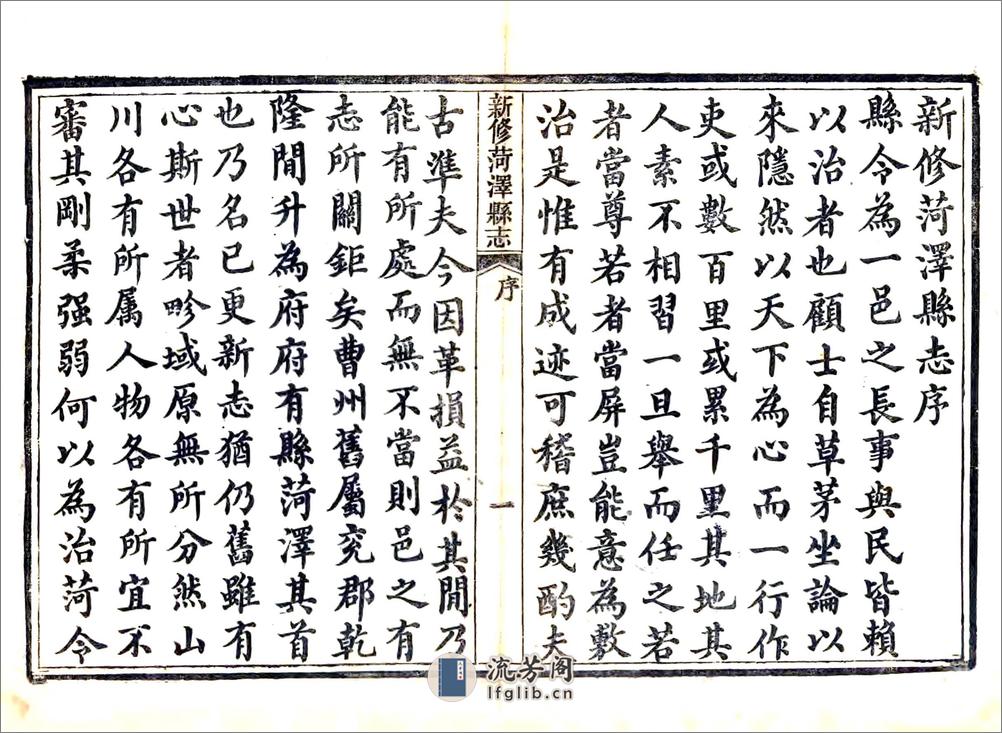 新修菏澤縣志序
縣令為一邑之長事與民皆賴
以治者也顧士自草茅坐論以
來隱然以天下為心而一行作
吏或數百里或累千里其地其
人素不相習一旦舉而任之若
者當尊若者當屏豈能意為敷
治是惟有成迹可稽庶幾酌夫
新修菏澤縣志
序
一
古準夫今因革損益於其間乃
能有所處而無不當則邑之有
志所關鉅矣曹州舊屬兖郡乾
隆間升為府府有縣菏澤其首
也乃名已更新志猶仍舊雖有
心斯世者畛域原無所分然山
川各有所属人物各有所宜不
審其剛柔强弱何以為治菏令
流芳阁
lfglib.cn